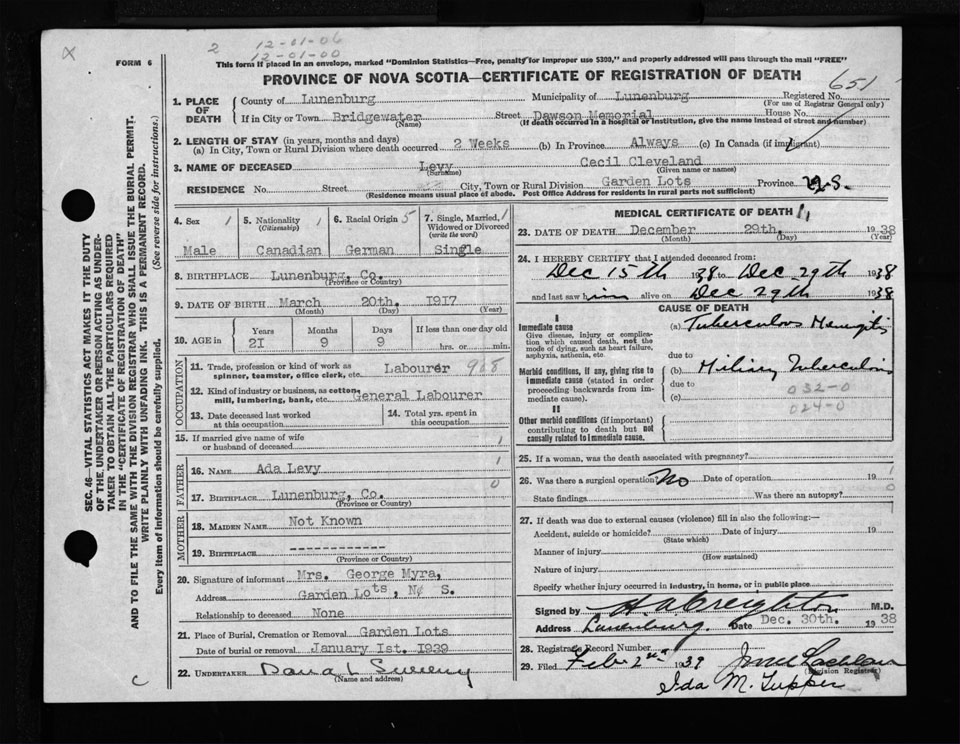 x
2 12-01-06
12-01-00
FORM 6
This form if placed in an envelope, marked "Dominion Statistics—Free, penalty for improper use $300," and properly addressed will pass through the mail "FREE"
PROVINCE OF NOVA SCOTIA—CERTIFICATE OF REGISTRATION OF DEATH
651
SEC. 46—VITAL STATISTICS ACT MAKES IT THE DUTY
OF THE UNDERTAKER OR PERSON ACTING AS UNDER-
TAKER TO OBTAIN ALL THE PARTICULARS REQUIRED
IN THE "CERTIFICATE OF REGISTRATION OF DEATH"
AND TO FILE THE SAME WITH THE DIVISION REGISTRAR WHO SHALL ISSUE THE BURIAL PERMIT.
WRITE PLAINLY WITH UNFADING INK. THIS IS A PERMANENT RECORD.
Every item of Information should be carefully supplied. (See reverse side for instructions.)
1. PLACE OF DEATH
County of Lunenburg Municipality of Lunenburg Registered No.
(For use of Registrar General only)
If in City or Town Bridgewater Street Dawson Memorial House No.
(Name) (If death occurred in a hospital or institution, give the name instead of street and number)
2. LENGTH OF STAY (in years, months and days)
(a) In City, Town or Rural Division where death occurred 2 Weeks (b) In Province Always (c) In Canada (if immigrant)
3. NAME OF DECEASED Levy Cecil Cleveland
(Surname) (Given name or names)
RESIDENCE No. Street City, Town or Rural Division Garden Lots Province N.S.
(Residence means usual place of abode. Post Office Address for residents in rural parts not sufficient)
4. Sex 1 5. Nationality 1 6. Racial Origin 5 7. Single, Married, 1
(Citizenship) Widowed or Divorced
(write the word)
Male Canadian German Single
8. BIRTHPLACE Lunenburg Co.
(Province or Country)
9. DATE OF BIRTH March 20th. 1917
(Month) (Day) (Year)
10. AGE in Years Months Days If less than one day old
21 9 9 hrs. or min.
OCCUPATION
11. Trade, profession or kind of work as
spinner, teamster, office clerk, etc. Labourer 908
12. Kind of industry or business, as cotton
mill, lumbering, bank, etc. General Labourer
13. Date deceased last worked
at this occupation
14. Total yrs. spent in
this occupation
15. If married give name of wife
or husband of deceased 1
FATHER
16. NAME Ada Levy 1
17. BIRTHPLACE Lunenburg, Co. 0
(Province or Country)
MOTHER
18. MAIDEN NAME Not Known
19. BIRTHPLACE --------------
(Province or Country)
20. Signature of informant Mrs. George Myra,
Address Garden Lots, N. S.
Relationship to deceased None
21. Place of Burial, Cremation or Removal Garden Lots
Date of burial or removal January 1st. 1939
22. UNDERTAKER Dana L Sweeny
(Name and address)
C
MEDICAL CERTIFICATE OF DEATH
23. DATE OF DEATH December 29th. 1938
(Month) (Day) (Year)
24. I HEREBY CERTIFY that I attended deceased from:
Dec 15th 1938 to Dec 29th 1938
and last saw him alive on Dec 29th 1938
CAUSE OF DEATH
I
Immediate cause (a) Tuberculous Meningitis
Give disease, injury or complica-
tion which caused death, not the
mode of dying, such as heart failure,
asphyxia, asthenia, etc. due to
Morbid conditions, if any, giving rise to (b) Miliary Tuberculosis
immediate cause (stated in order due to
proceeding backwards from im-
mediate cause). (c) 032-0
024-0
II
Other morbid conditions (if important)
contributing to death but not
causally related to Immediate cause.
25. If a woman, was the death associated with pregnancy?
26. Was there a surgical operation? No Date of operation 19
State findings Was there an autopsy? 0
27. If death was due to external causes (violence) fill in also the following:—
Accident, suicide or homicide? Date of injury 19
(State which)
Manner of injury
(How sustained)
Nature of injury
Specify whether injury occurred in industry, in home, or in public place
Signed by H A Creighton M.D.
Address Lunenburg. Date Dec. 30th. 1938
28. Registrar's Record Number
29. Filed Feb 2nd 1939
(Division Registrar)
Ida M. Tupper